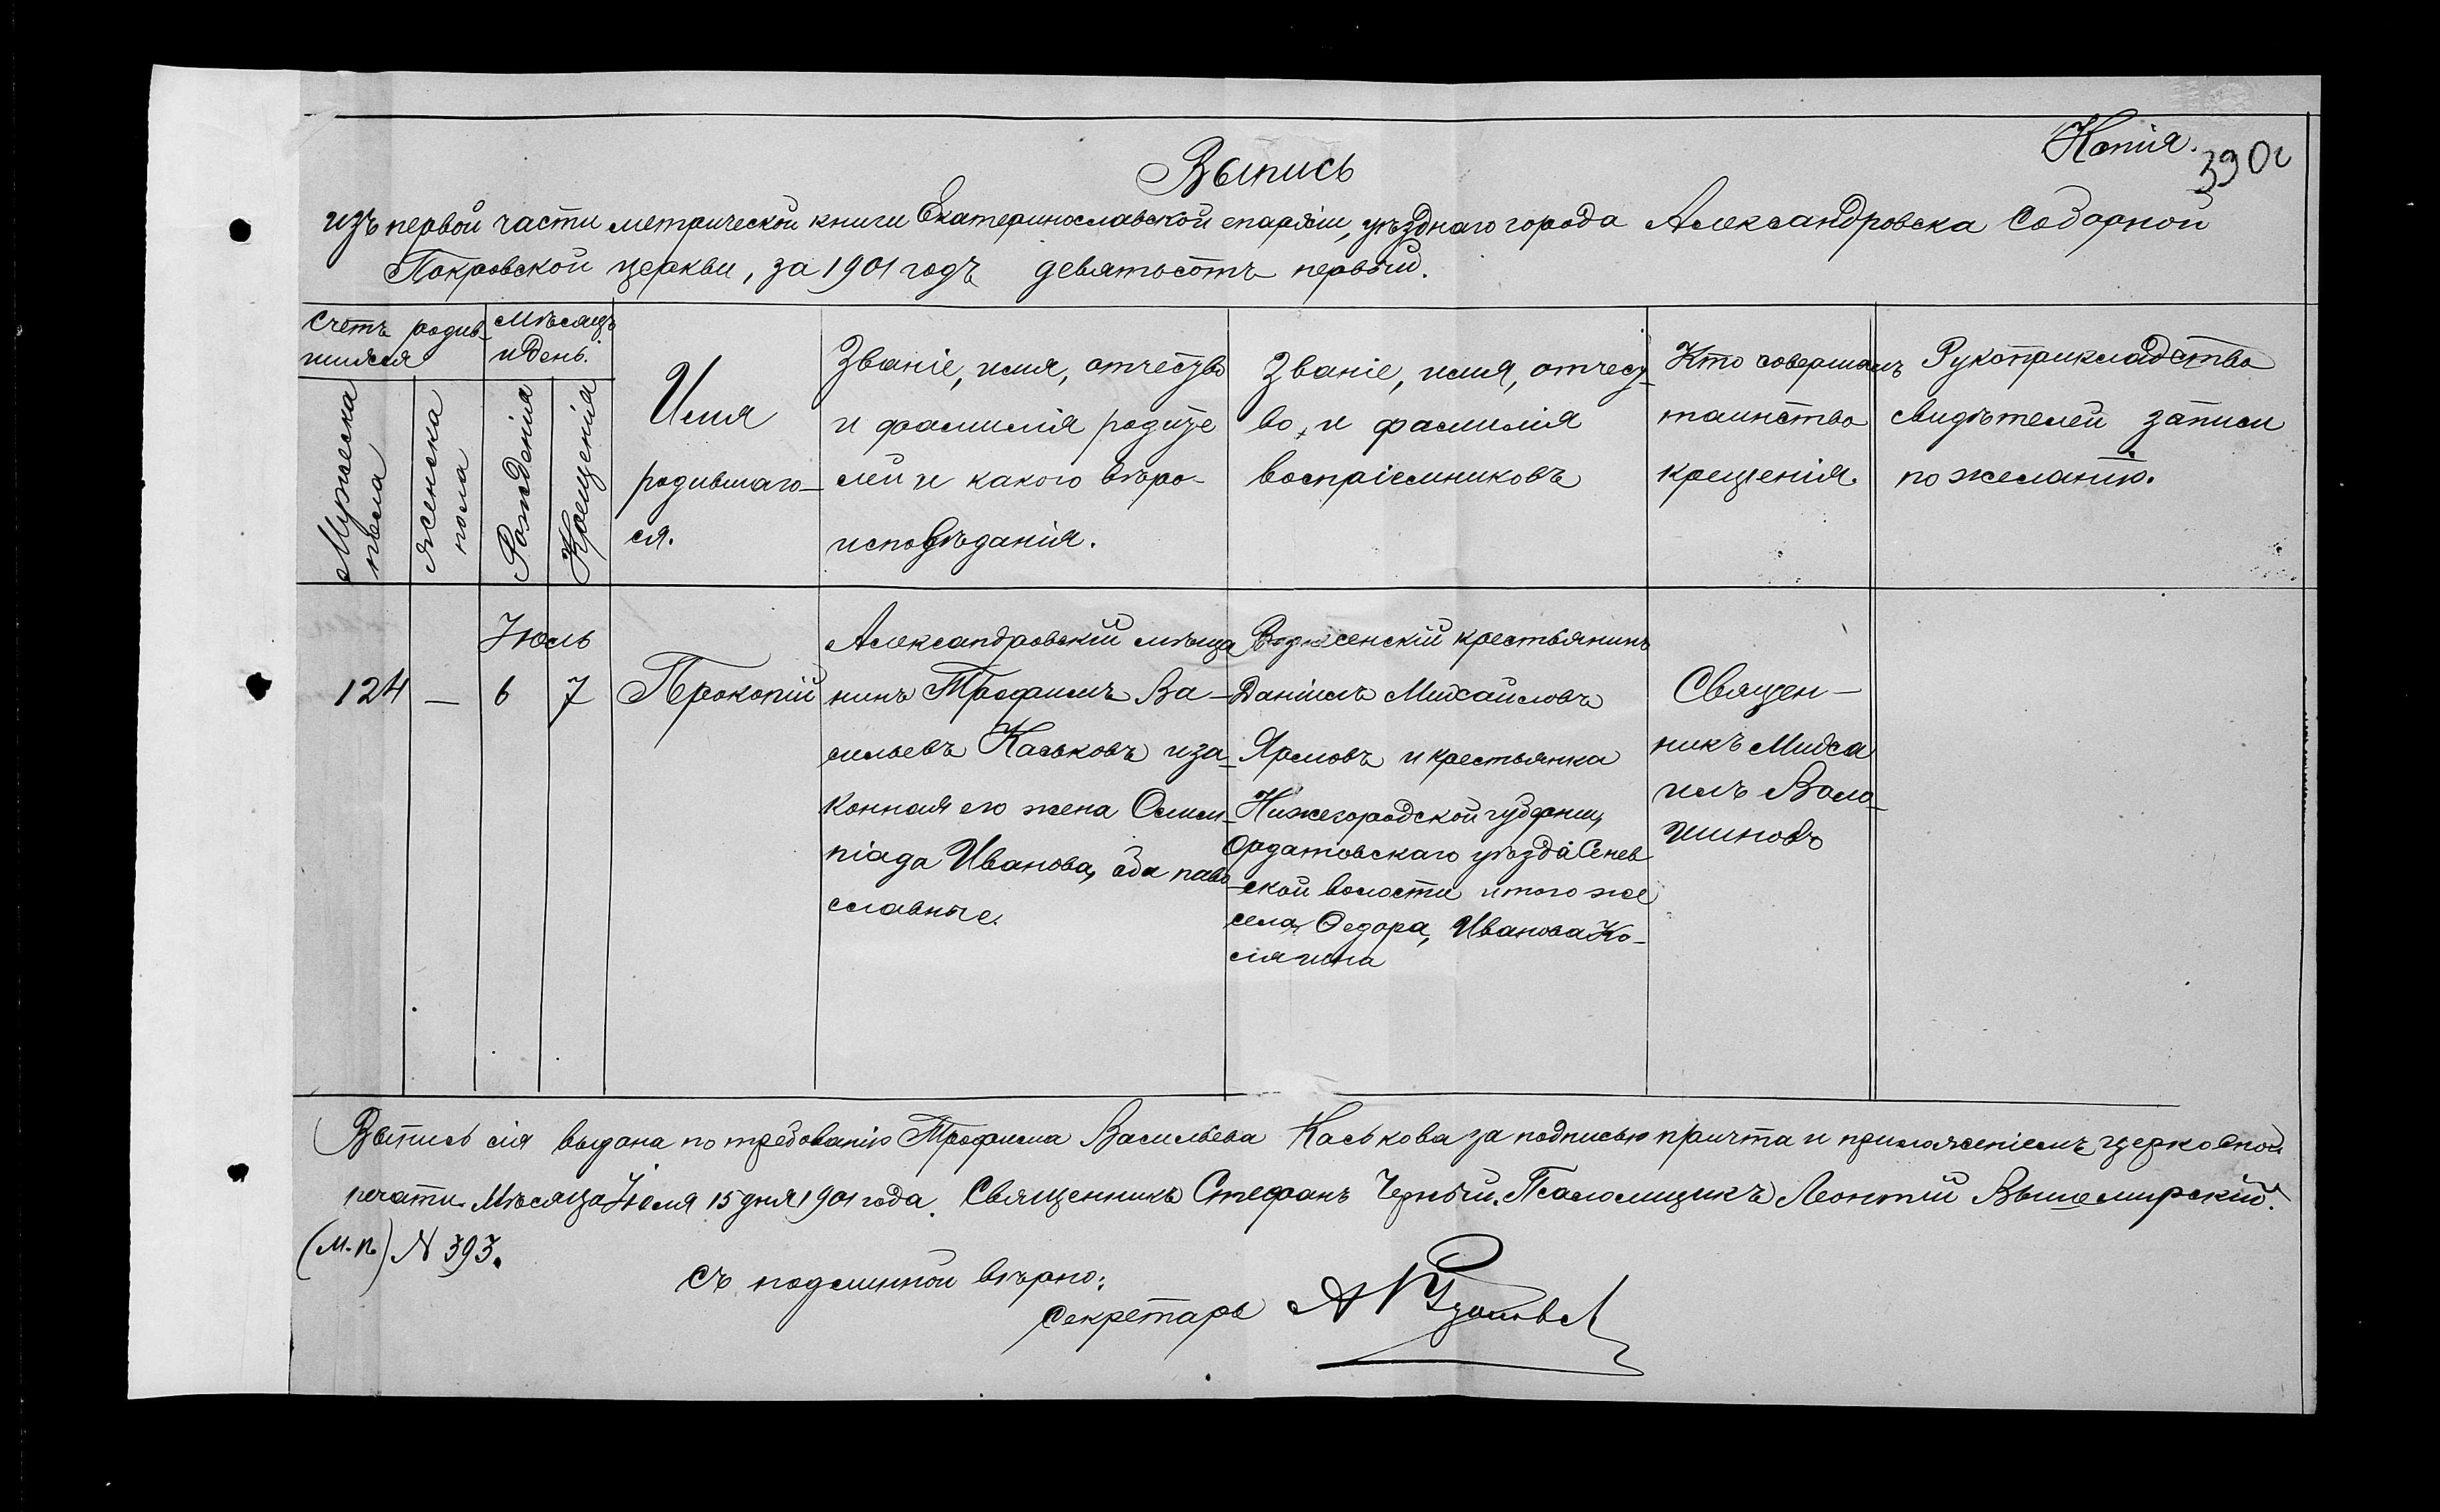 Копія.
390г
Выпись
изъ первой части метрической книги Екатеринославской епархіи, уѣзднаго города Александровска Соборной
Покровской церкви, за 1901 годъ девятьсотъ первый.
Счетъ родив-
шихся
Мужеска
пола
женска
пола
Мѣсяцъ
и день.
Рожденія
Крещенія
Имя
родившаго-
ся.
Званіе, имя, отчество
и фамилія родите
лей и какого вѣро-
исповѣданія.
Званіе, имя, отчест-
во, и фамилія
воспріемниковъ
Кто совершалъ
таинство
крещенія.
Рукоприкладство
свидѣтелей записи
по желанію.
124
—
Іюль
6
7
Прокопій
Александровскій мѣща
нинъ Трофимъ Ва-
сильевъ Каськовъ и за-
конная его жена Олим-
піада Иванова, оба паво
славные.
Вознесенскій крестьянинъ
Даніилъ Михайловъ
Ярмовъ и крестьянка
Нижегородской губерніи,
Ардатовскаго уѣзда Сенев
-ской волости и того же
села, Ѳедора, Иванова Ко-
лягина
Священ-
никъ Миха
илъ Воло-
шиновъ
Выпись сія выдана по требованію Трофима Васильева Каськова за подписью причта и приложеніемъ церковной
печати. Мѣсяца Іюля 15 дня 1901 года. Священникъ Стефанъ Черный. Псаломщикъ Леонтій Вышемирскій.
(М.п.) N 393.
Съ подлинной вѣрно:
Секретарь А